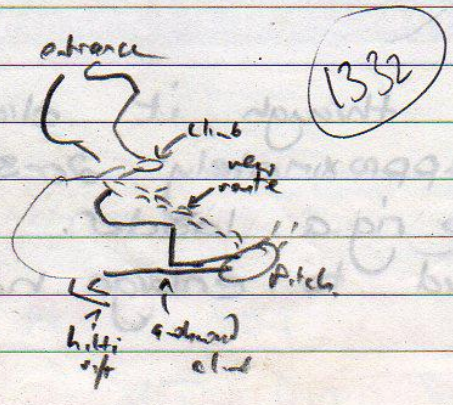 entrance
1332
climb
new
route
Pitch
hilti
rift
awkward
climb